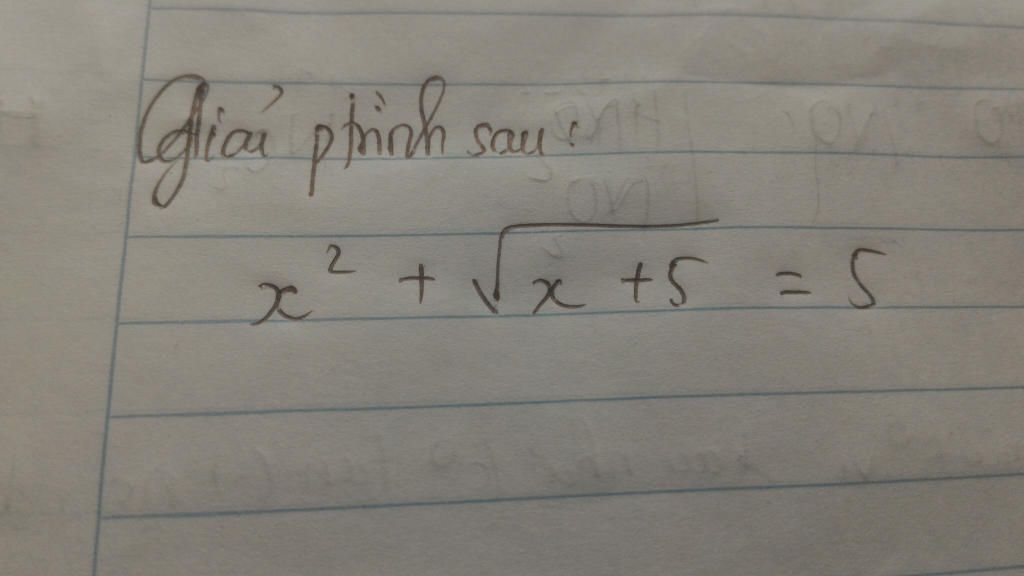 Giải ptrình sau:
x² + √(x + 5) = 5